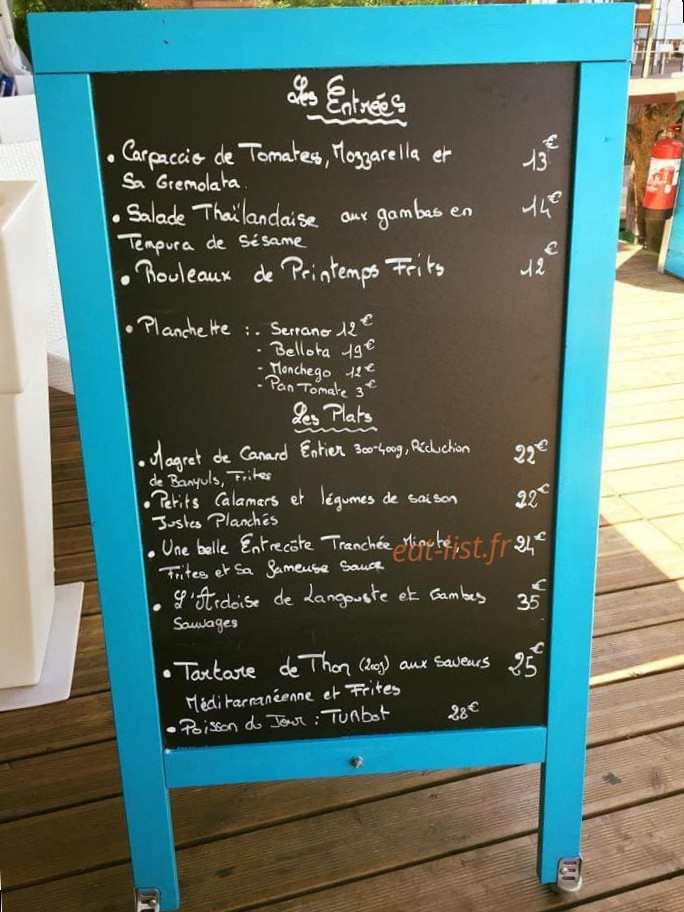 Les Entrées
• Carpaccio de Tomates, Mozzarella et 13€
Sa Gremolata.
• Salade Thaïlandaise aux gambas en 14€
Tempura de Sésame
• Rouleaux de Printemps Frits 12€
• Planchette : . Serrano 12€
- Bellota 19€
- Manchego 12€
- Pan Tomate 3€
Les Plats
• Magret de Canard Entier 300-400g, Réduction 22€
de Banyuls, Frites
• Petits Calamars et légumes de saison 22€
Justes Planchés
• Une belle Entrecôte Tranchée Minute, 24€
eat-list.fr
Frites et sa fameuse sauce
• L'Ardoise de Langouste et Gambas 35€
Sauvages
• Tartare de Thon (200g) aux saveurs 25€
Méditarranéenne et Frites
• Poisson du Jour : Turbot 28€